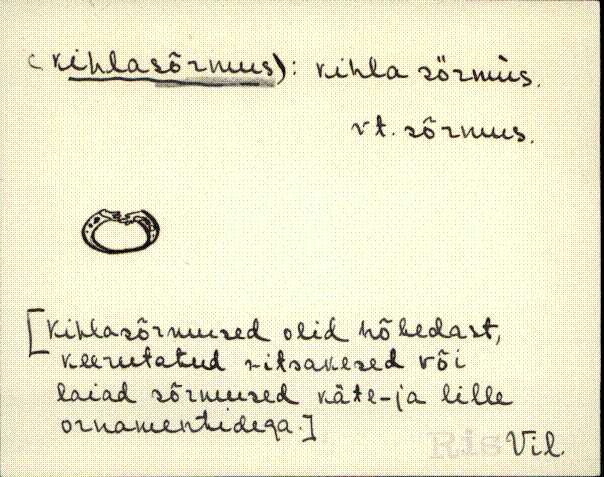 (kihlasõrmus): kihla sõrmus.
vt. sõrmus.
[Kihlasõrmused olid hõbedast,
keerutatud sitsakesed või
laiad sõrmused käte-ja lille
ornamentidega.]
Ris Vil.